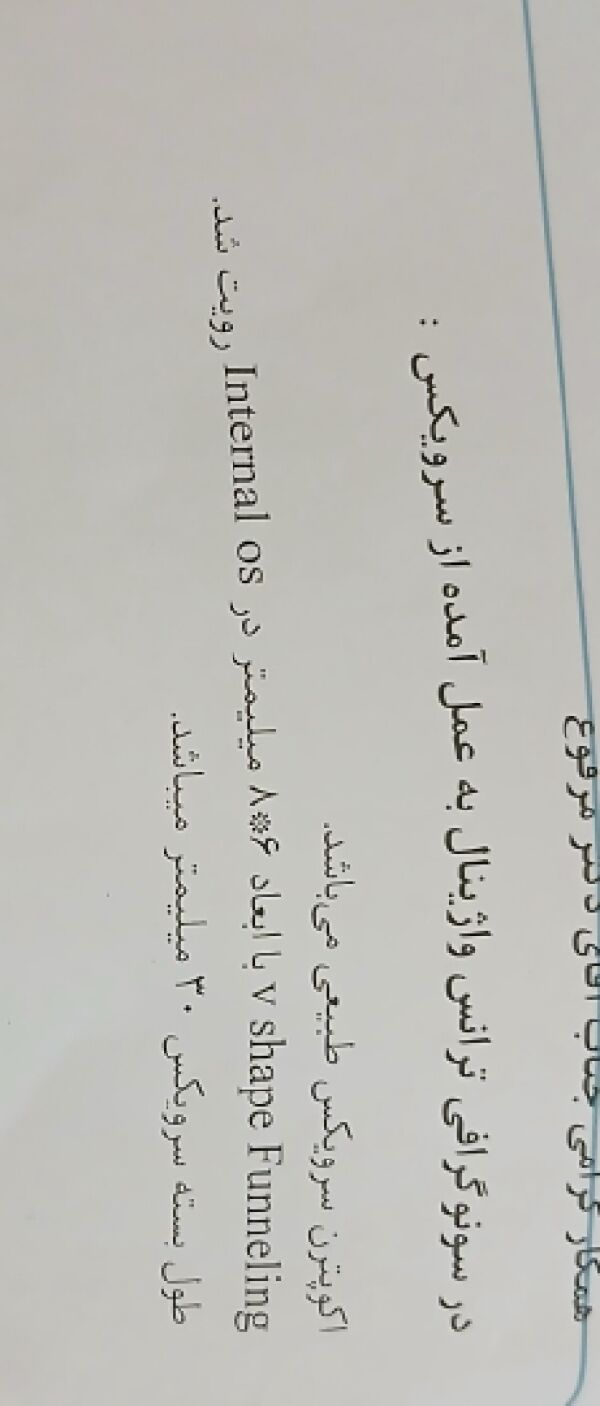 همکار گرامی جناب آقای دکتر مرفوع
در سونوگرافی ترانس واژینال به عمل آمده از سرویکس :
اکوپترن سرویکس طبیعی می‌باشد.
V shape Funneling با ابعاد ۶*۸ میلیمتر در Internal os رویت شد.
طول بسته سرویکس ۳۰ میلیمتر میباشد.